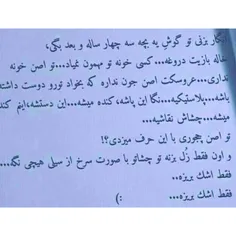 انگار بزنی تو گوش یه بچه سه چهار ساله و بعد بگی،
خاله بازیت دروغه...کسی خونه تو مهمون نمیاد...تو اصن خونه
نداری...عروسکت اصن جون نداره که بخواد تورو دوست داشته
باشه...پلاستیکیه...نگا این پاشه،کنده میشه...این دستشه،اینم کنده
میشه...چشاش نقاشیه...
تو اصن چجوری با این حرف میزدی؟!
و اون فقط زُل بزنه تو چشاتو با صورت سرخ از سیلی هیچی نگه...
فقط اشک بریزه..
فقط اشک بریزه... :)